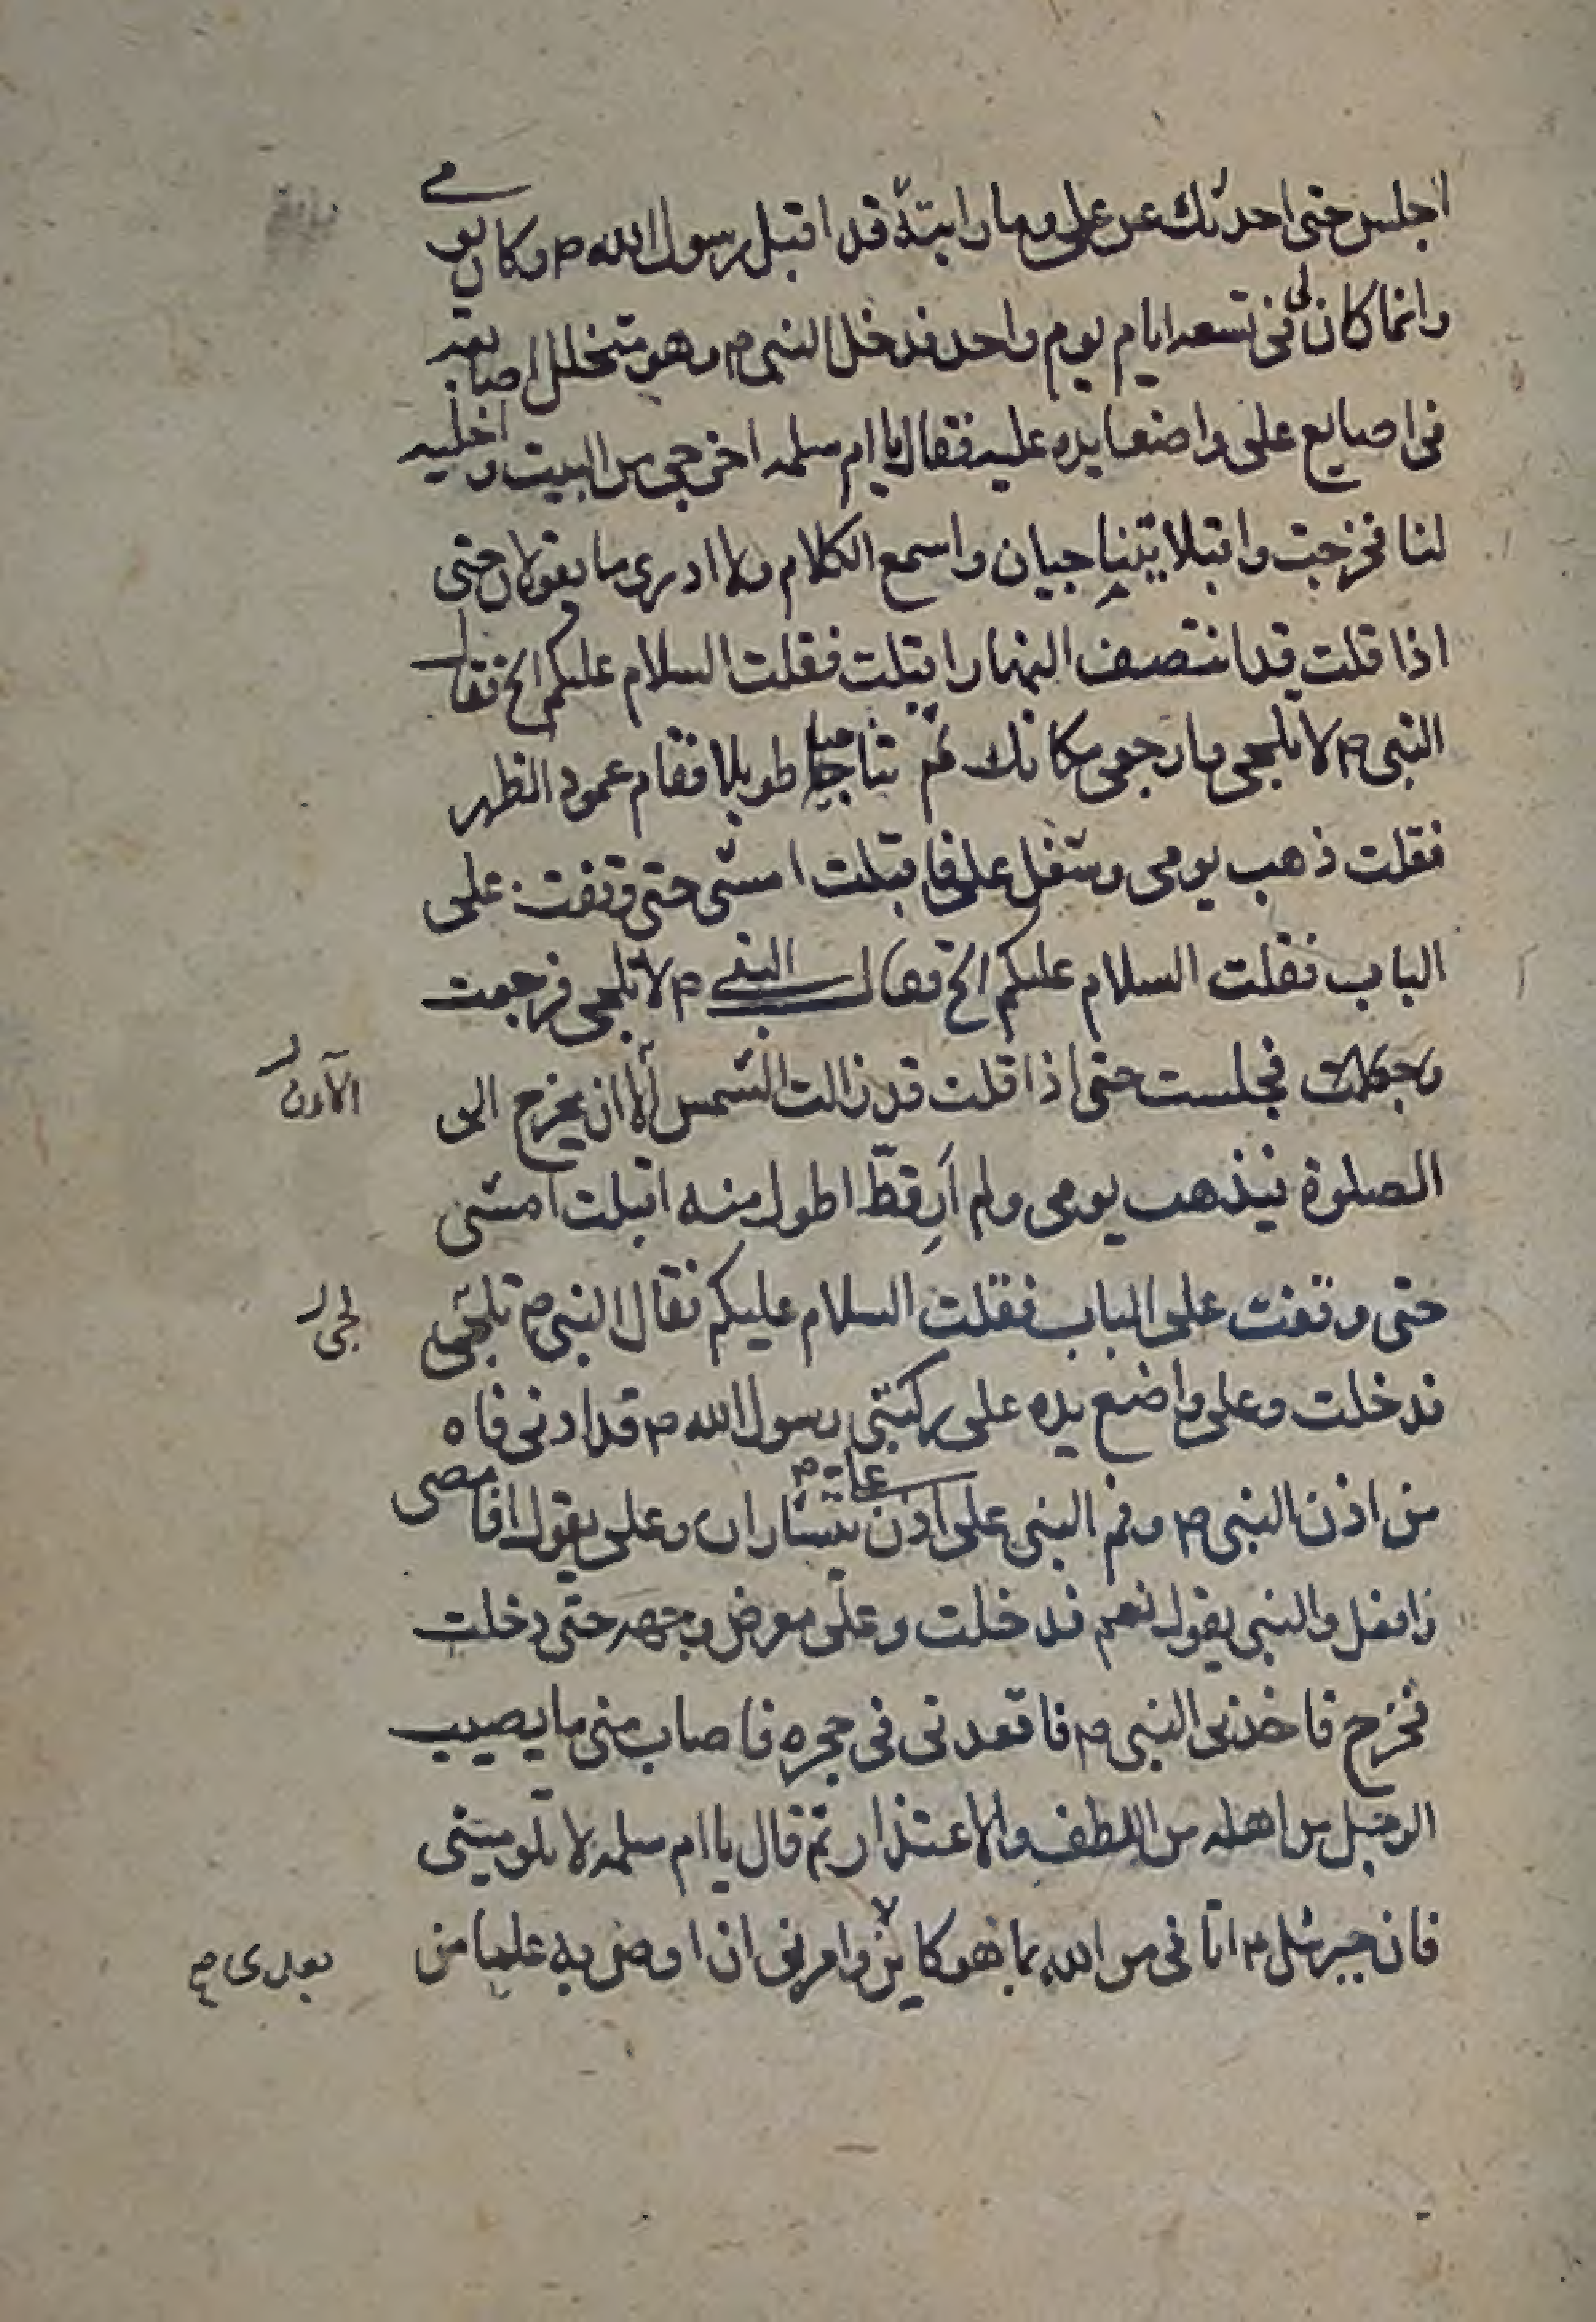 اجلس حتى احدثك عن على وما رايته قد اقبل رسول الله ص وكان يومي
وانما كان لى فى تسعه ايام يوم واحد فدخل النبى ص وهو متخلل اصابعه
فى اصابع على واضعا يده عليه فقال يا ام سلمه اخرجى من البيت واخليه
لنا فخرجت واقبلا يتناجيان واسمع الكلام ولا ادرى ما يقولان حتى
اذا قلت قد انتصف النهار اقبلت فقلت السلام عليكم الج فقال
النبى ص لا تلجى وارجعى مكانك ثم تناجيا طويلا فقام عمود الظهر
فقلت ذهب يومى وشغل على فاقبلت امشى حتى وقفت على
الباب فقلت السلام عليكم الج فقال النبي ص لا تلجى فرجعت
فجلست حتى اذا قلت قد زالت الشمس الا ان يخرج الى
الآن
الصلوة فيذهب يومى ولم ار قط اطول منه اقبلت امشى
حتى وقفت على الباب فقلت السلام عليكم فقال النبى ص تلجى
لجى
فدخلت وعلى واضع يده على ركبتى رسول الله ص قد ادنى فاه
من اذن النبى ص وفم النبى على اذن على ع يتساران وعلى يقول افامضى
وافعل والنبى يقول نعم فدخلت وعلى معرض وجهه حتى دخلت
فخرج فاخذنى النبى ص فاقعدنى فى حجره فاصاب منى ما يصيب
الرجل من اهله من اللطف والاعتذار ثم قال يا ام سلمه لا تلومينى
فان جبرئيل ع اتانى من الله بما هو كاين وامرنى ان اوصى به عليا من
بعدى ص